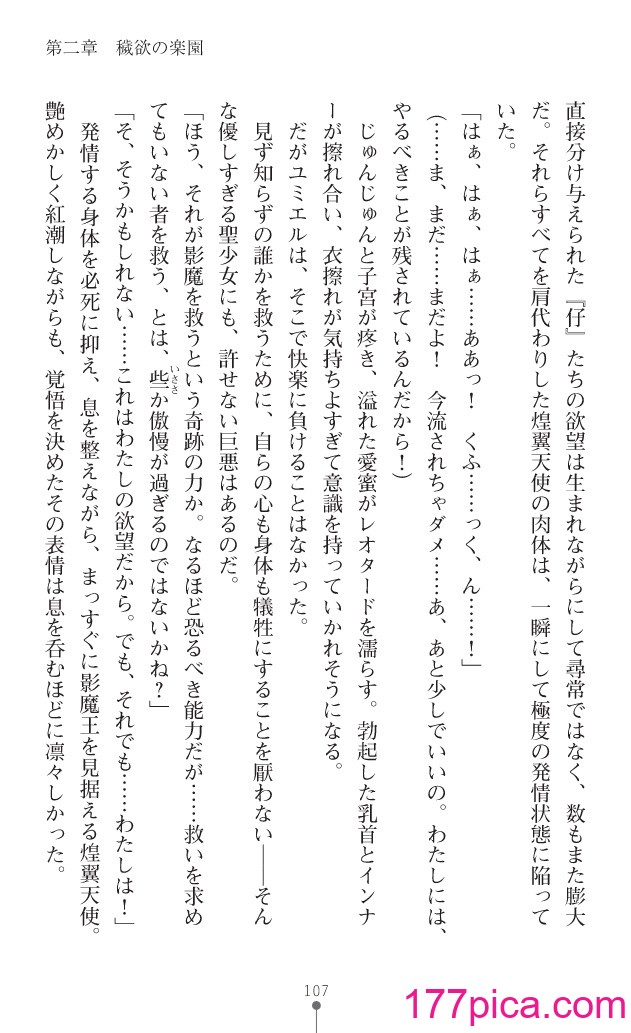 第二章 穢欲の楽園
直接分け与えられた『仔』たちの欲望は生まれながらにして尋常ではなく、数もまた膨大
だ。それらすべてを肩代わりした煌翼天使の肉体は、一瞬にして極度の発情状態に陥って
いた。
「はぁ、はぁ、はぁ……ああっ！　くふ……っく、ん……！」
（……ま、まだ……まだよ！　今流されちゃダメ……あ、あと少しでいいの。わたしには、
やるべきことが残されているんだから！）
じゅんじゅんと子宮が疼き、溢れた愛蜜がレオタードを濡らす。勃起した乳首とインナ
ーが擦れ合い、衣擦れが気持ちよすぎて意識を持っていかれそうになる。
だがユミエルは、そこで快楽に負けることはなかった。
見ず知らずの誰かを救うために、自らの心も身体も犠牲にすることを厭わない――そん
な優しすぎる聖少女にも、許せない巨悪はあるのだ。
「ほう、それが影魔を救うという奇跡の力か。なるほど恐るべき能力だが……救いを求め
てもいない者を救う、とは、些いささか傲慢が過ぎるのではないかね？」
「そ、そうかもしれない……これはわたしの欲望だから。でも、それでも……わたしは！」
発情する身体を必死に抑え、息を整えながら、まっすぐに影魔王を見据える煌翼天使。
艶めかしく紅潮しながらも、覚悟を決めたその表情は息を呑むほどに凛々しかった。
107
177pica.com